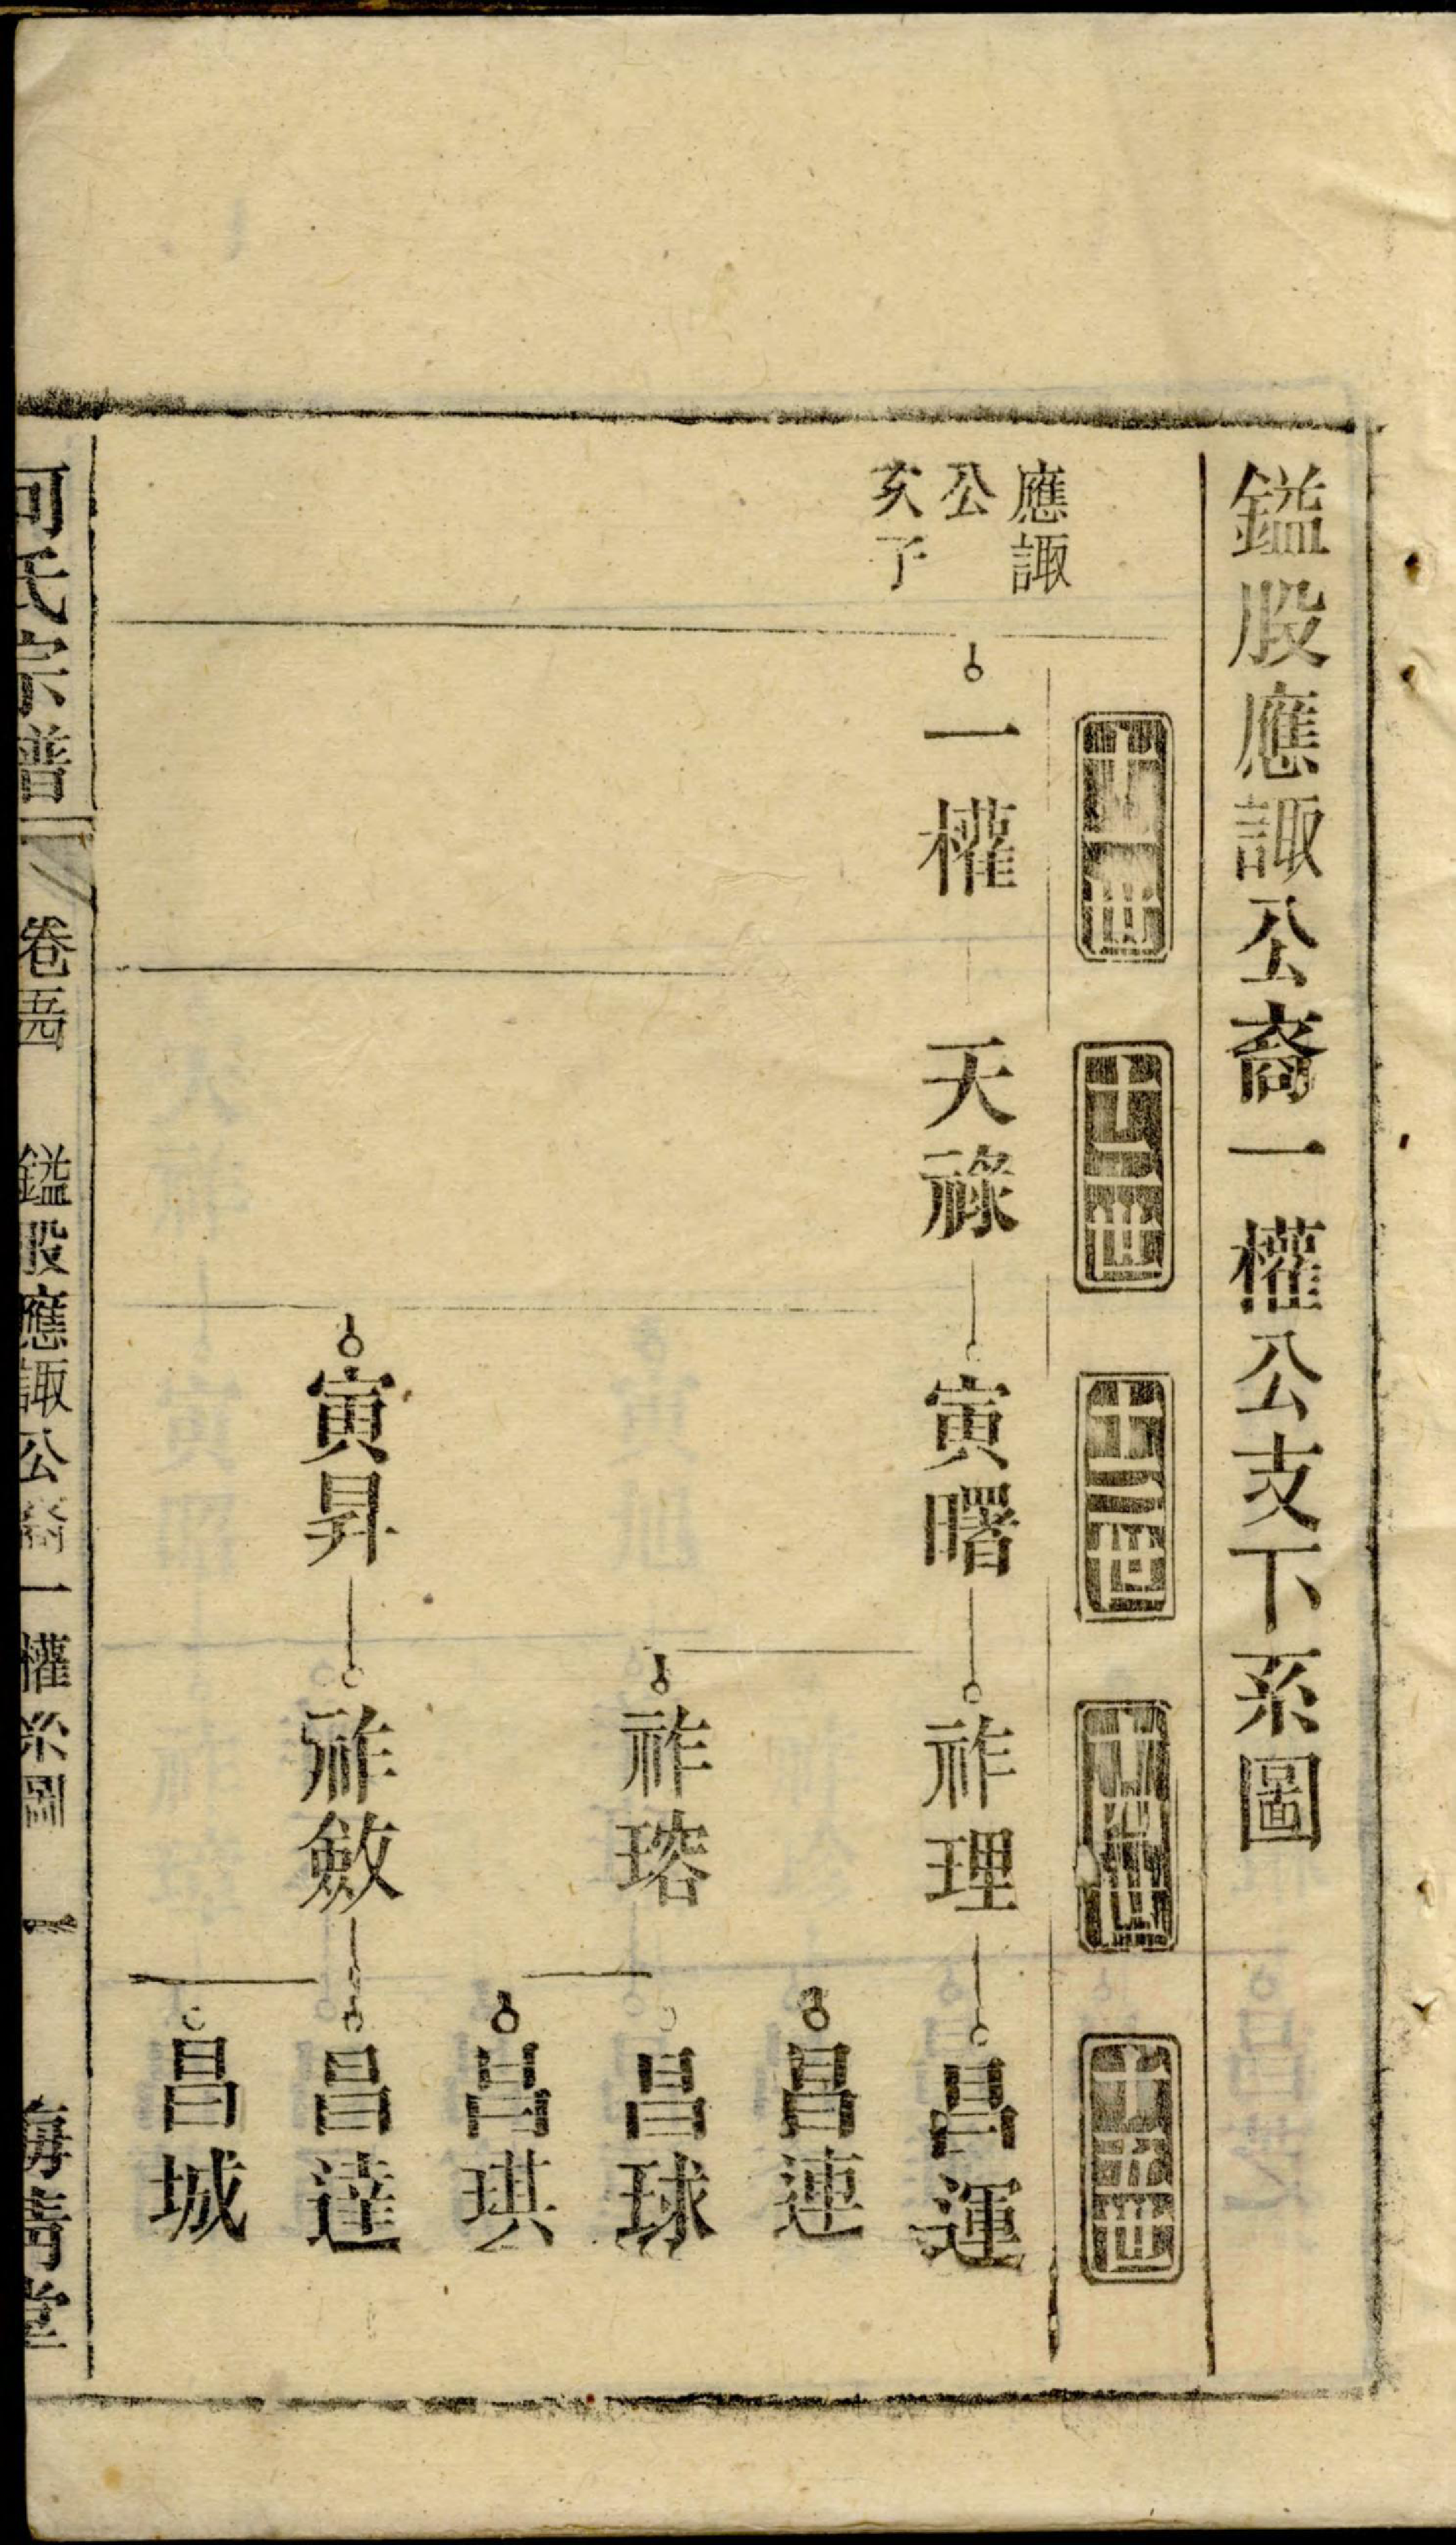 鎰股應諏公裔一權公支下系圖
十一世
十二世
十三世
十四世
十五世
應諏
公
次子
一權
天祿
寅曙
祚理
昌運
昌連
祚瑢
昌球
昌琪
寅昇
祚斂
昌達
昌城
何氏宗譜
鎰股應諏公裔一權系圖